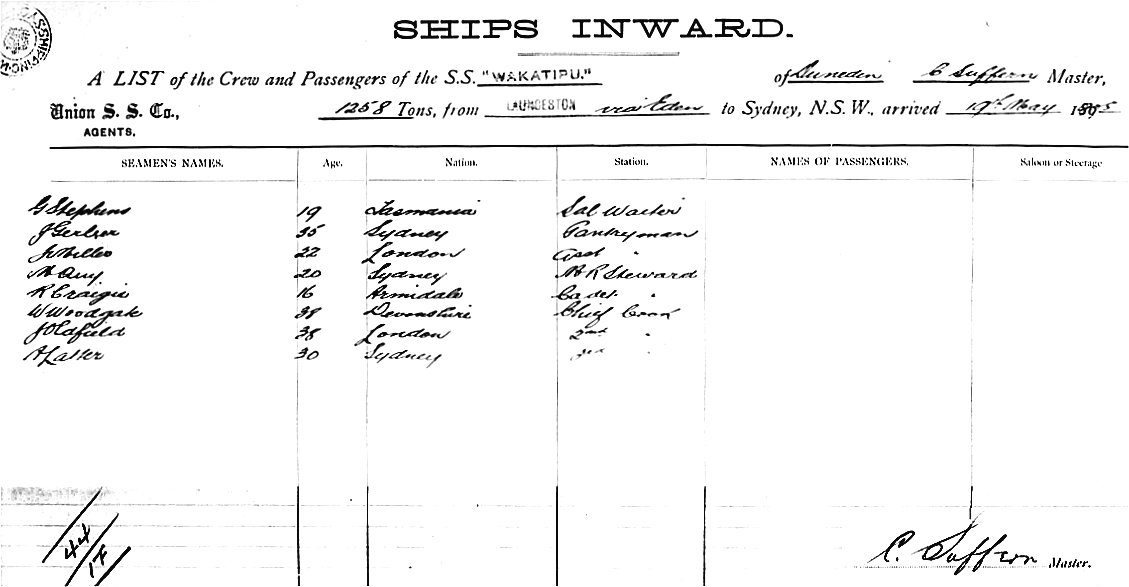 SHIPS INWARD.
A LIST of the Crew and Passengers of the S.S. "WAKATIPU." of Dunedin C Suffern Master,
Union S. S. Co., AGENTS. 1258 Tons, from LAUNCESTON via Eden to Sydney, N.S.W., arrived 19th May 1895
SEAMEN'S NAMES. Age. Nation. Station. NAMES OF PASSENGERS. Saloon or Steerage
G Stephens 19 Tasmania Sal Waiter
J 35 Sydney Pantryman
22 London Asst "
20 Sydney M R Steward
R Craigie 16 Armidale Cadet "
W Woodgak 38 Devonshire Chief Cook
J Oldfield 38 London 2nd "
A Laster 30 Sydney 3rd "
44
17
C. Suffern Master.